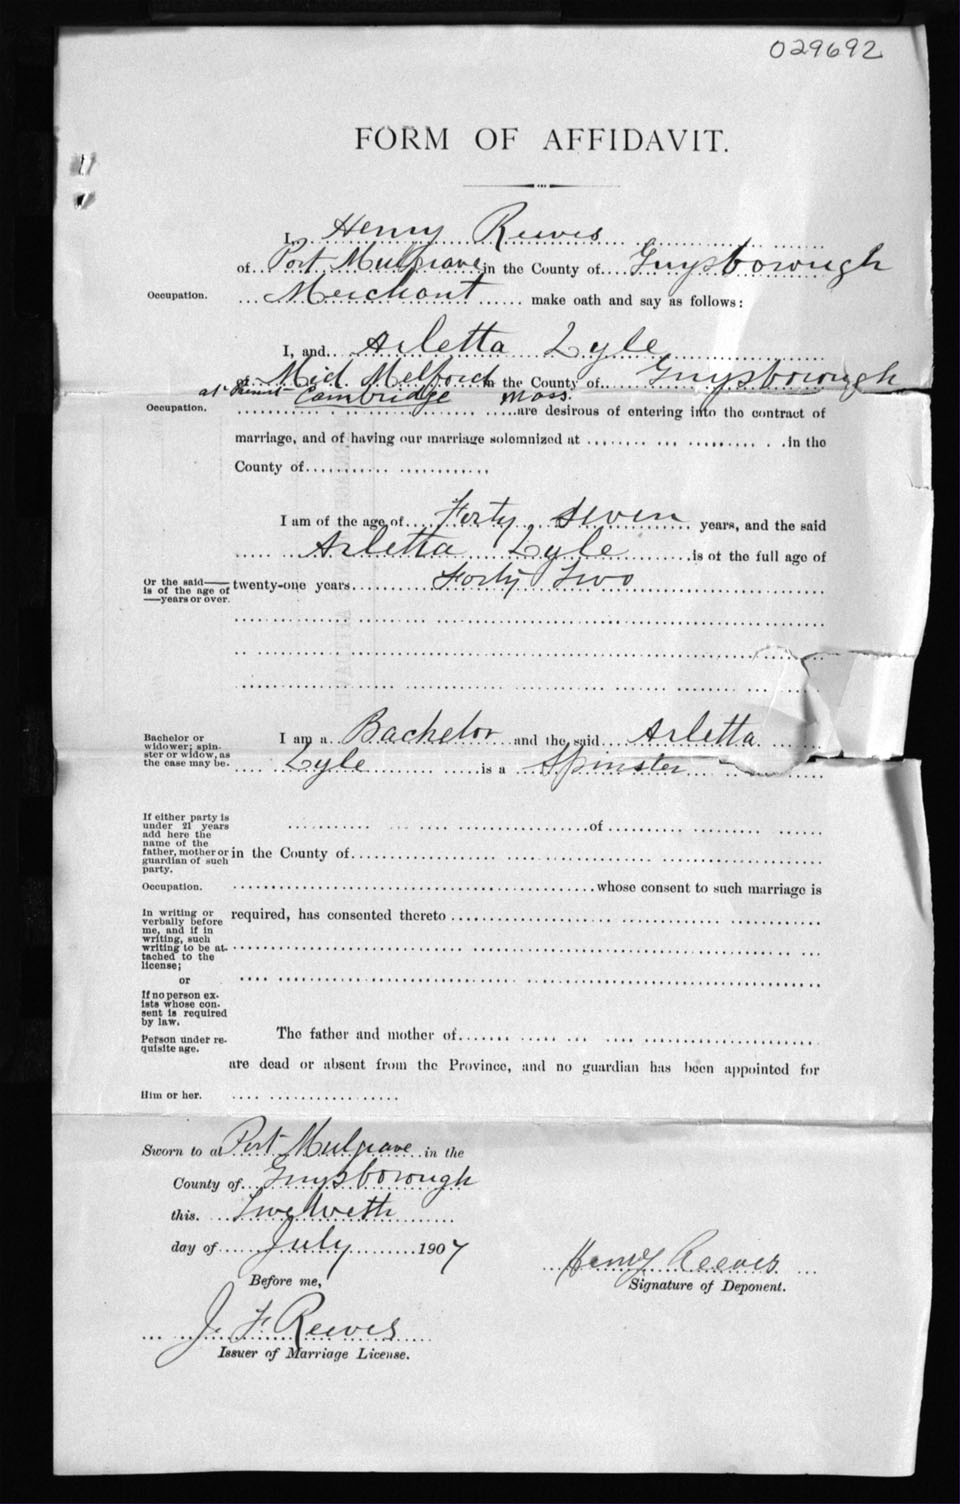 029692
FORM OF AFFIDAVIT.
I, Henry Reeves
of Port Mulgrave in the County of Guysborough
Occupation. Merchant make oath and say as follows:
I, and Arletta Lyle
of Mid Melford in the County of Guysborough
at Present Cambridge Mass.
Occupation. are desirous of entering into the contract of
marriage, and of having our marriage solemnized at in the
County of
I am of the age of Forty Seven years, and the said
Arletta Lyle is of the full age of
Or the said—— is of the age of ——years or over. twenty-one years Forty Two
Bachelor or widower; spinster or widow, as the case may be. I am a Bachelor and the said Arletta
Lyle is a Spinster
If either party is under 21 years add here the name of the father, mother or guardian of such party. of
in the County of
Occupation. whose consent to such marriage is
In writing or verbally before me, and if in writing, such writing to be attached to the license; required, has consented thereto
or
If no person exists whose consent is required by law.
Person under requisite age. The father and mother of
are dead or absent from the Province, and no guardian has been appointed for
Him or her.
Sworn to at Port Mulgrave in the
County of Guysborough
this. Twelveth
day of July 1907
Before me,
Henry Reeves
Signature of Deponent.
J. F. Reeves
Issuer of Marriage License.